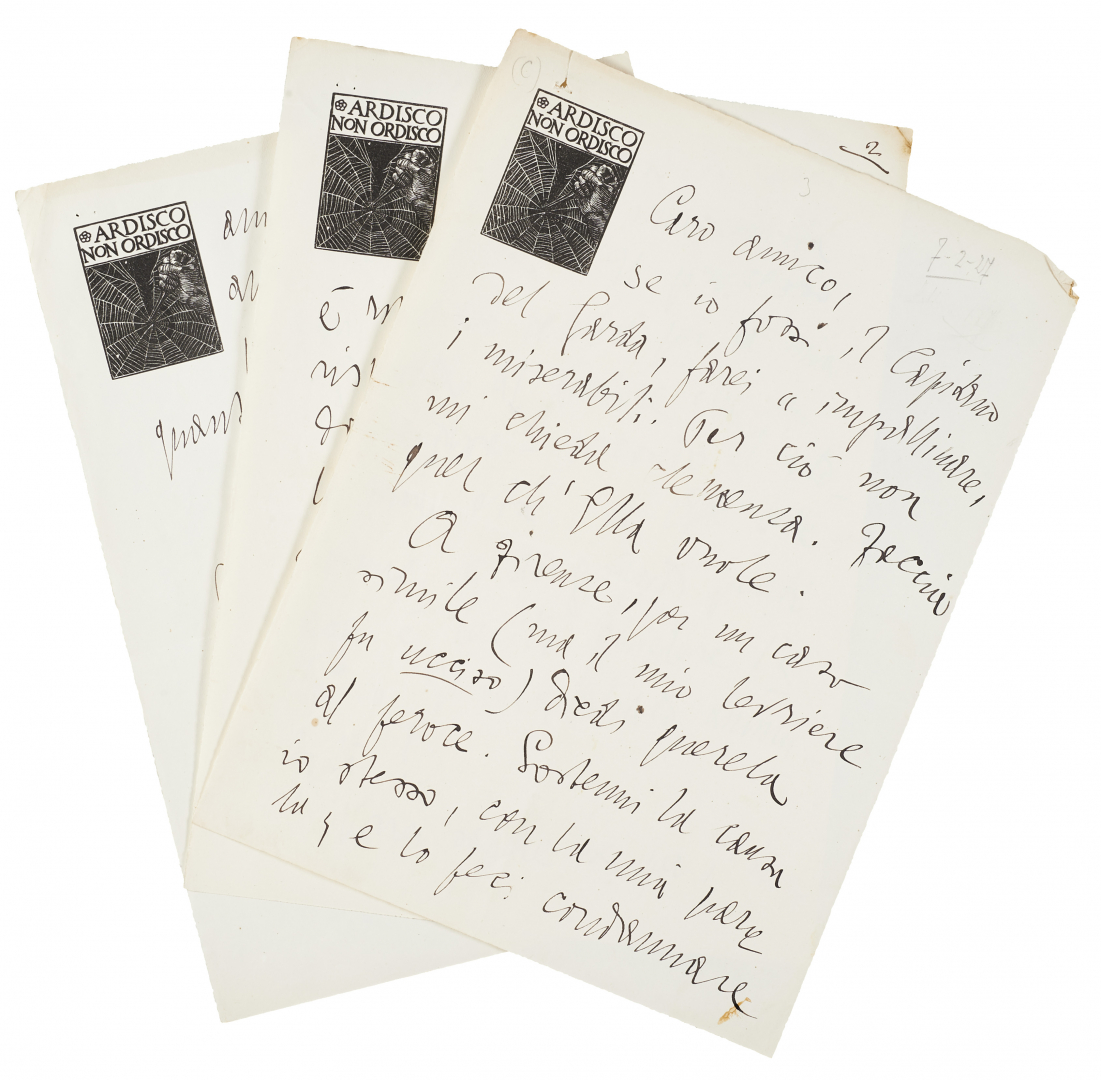 ARDISCO
NON ORDISCO
am
quan
ARDISCO
NON ORDISCO
è
ris
2
(C)
ARDISCO
NON ORDISCO
3
7-2-27
Caro amico,
se io fossi il Capitano
del Garda, farei "impallinare"
i miserabili. Per ciò non
mi chieda clemenza. Faccia
quel ch'Ella vuole.
A Firenze, per un caso
simile (ma il mio levriere
fu ucciso) diedi querela
al feroce. Sostenni la causa
io stesso, con la mia paro
la, e lo feci condannare